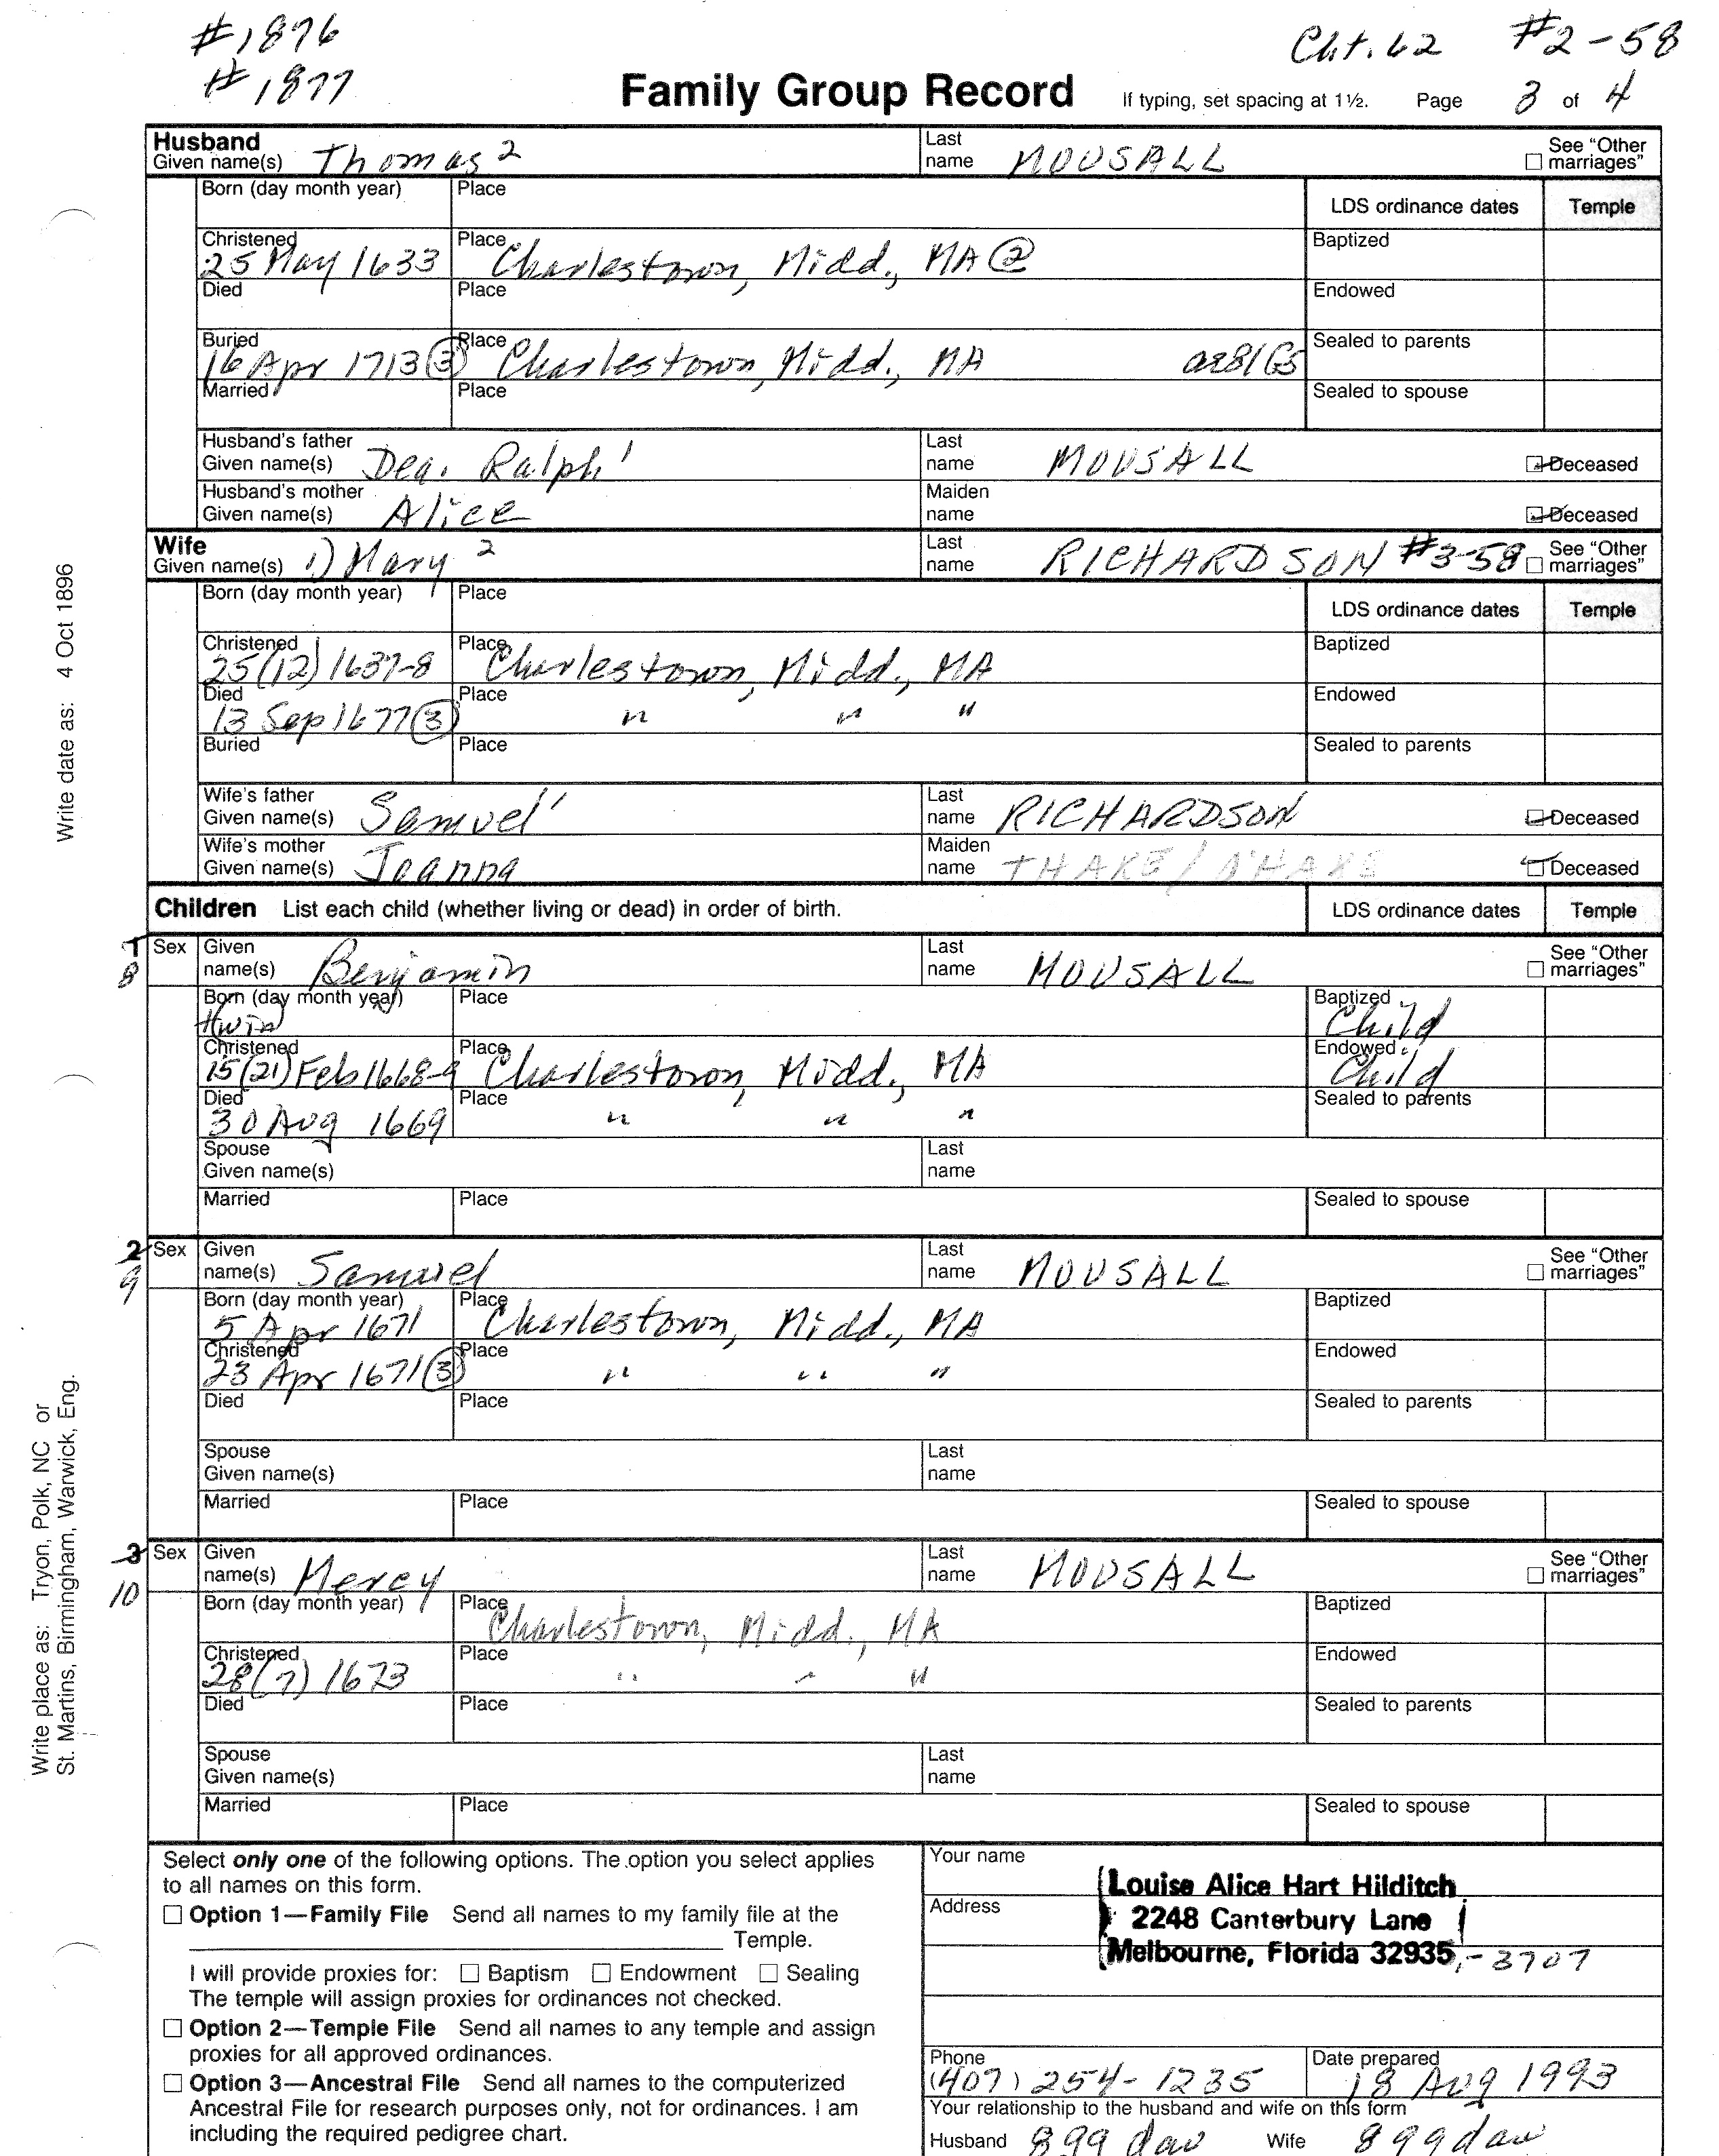 #1876 Cht. 62 #2-58
#1877
Family Group Record If typing, set spacing at 1½. Page 3 of 4
Husband
Given name(s) Thomas 2 Last name MOUSALL See "Other marriages"
Born (day month year) Place LDS ordinance dates Temple
Christened 25 May 1633 Place Charlestown, Midd., MA ② Baptized
Died Place Endowed
Buried 16 Apr 1713 ③ Place Charlestown, Midd., MA ae81GS Sealed to parents
Married Place Sealed to spouse
Husband's father
Given name(s) Dea. Ralph 1 Last name MOUSALL Deceased
Husband's mother
Given name(s) Alice Maiden name Deceased
Wife
Given name(s) 1) Mary 2 Last name RICHARDSON #3-58 See "Other marriages"
Born (day month year) Place LDS ordinance dates Temple
Christened 25(12) 1637-8 Place Charlestown, Midd., MA Baptized
Died 13 Sep 1677 ③ Place " " " Endowed
Buried Place Sealed to parents
Wife's father
Given name(s) Samuel 1 Last name RICHARDSON Deceased
Wife's mother
Given name(s) Joanna Maiden name THAKE/ Deceased
Children List each child (whether living or dead) in order of birth. LDS ordinance dates Temple
1 8 Sex Given name(s) Benjamin Last name MOUSALL See "Other marriages"
Born (day month year) twin Place Baptized Child
Christened 15(21) Feb 1668-9 Place Charlestown, Midd., MA Endowed Child
Died 30 Aug 1669 Place " " " Sealed to parents
Spouse
Given name(s) Last name
Married Place Sealed to spouse
2 9 Sex Given name(s) Samuel Last name MOUSALL See "Other marriages"
Born (day month year) 5 Apr 1671 Place Charlestown, Midd., MA Baptized
Christened 23 Apr 1671 ③ Place " " " Endowed
Died Place Sealed to parents
Spouse
Given name(s) Last name
Married Place Sealed to spouse
3 10 Sex Given name(s) Mercy Last name MOUSALL See "Other marriages"
Born (day month year) Place Charlestown, Midd., MA Baptized
Christened 28(7) 1673 Place " " " Endowed
Died Place Sealed to parents
Spouse
Given name(s) Last name
Married Place Sealed to spouse
Select only one of the following options. The option you select applies
to all names on this form.
Option 1—Family File Send all names to my family file at the
Temple.
I will provide proxies for: Baptism Endowment Sealing
The temple will assign proxies for ordinances not checked.
Option 2—Temple File Send all names to any temple and assign
proxies for all approved ordinances.
Option 3—Ancestral File Send all names to the computerized
Ancestral File for research purposes only, not for ordinances. I am
including the required pedigree chart.
Your name Louise Alice Hart Hilditch
Address 2248 Canterbury Lane
Melbourne, Florida 32935-3707
Phone (407) 254-1235 Date prepared 18 Aug 1993
Your relationship to the husband and wife on this form
Husband 8 99 dau Wife 8 99 dau
Write date as: 4 Oct 1896
Write place as: Tryon, Polk, NC or
St. Martins, Birmingham, Warwick, Eng.